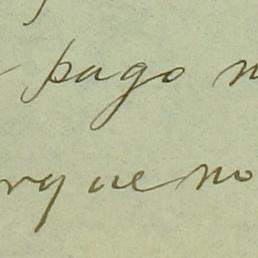 pago n
rq ue no